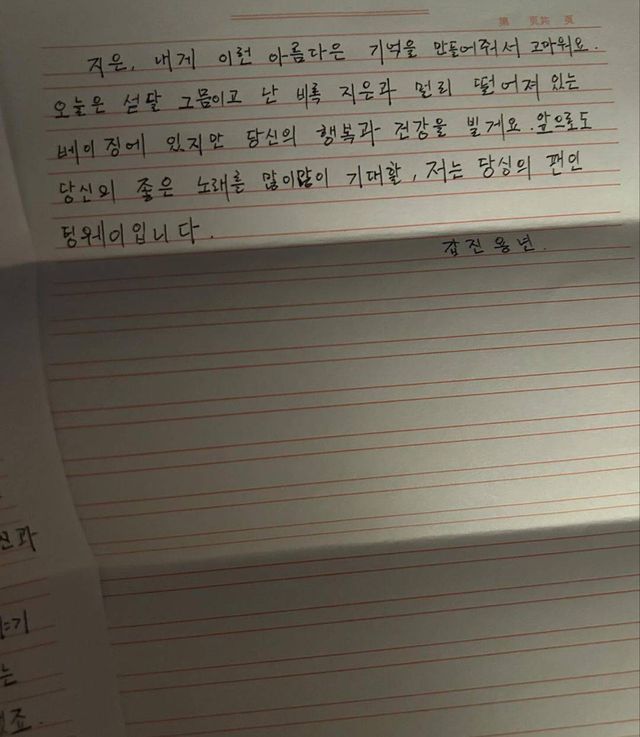 第 页共 页
지은, 내게 이런 아름다은 기억을 만들어줘서 고마워요.
오늘은 섣달 그믐이고 난 비록 지은과 멀리 떨어져 있는
베이징에 있지만 당신의 행복과 건강을 빌게요. 앞으로도
당신의 좋은 노래를 많이많이 기대할, 저는 당싱의 팬인
덩웨이입니다.
갑진용년.
신과
는
죠.